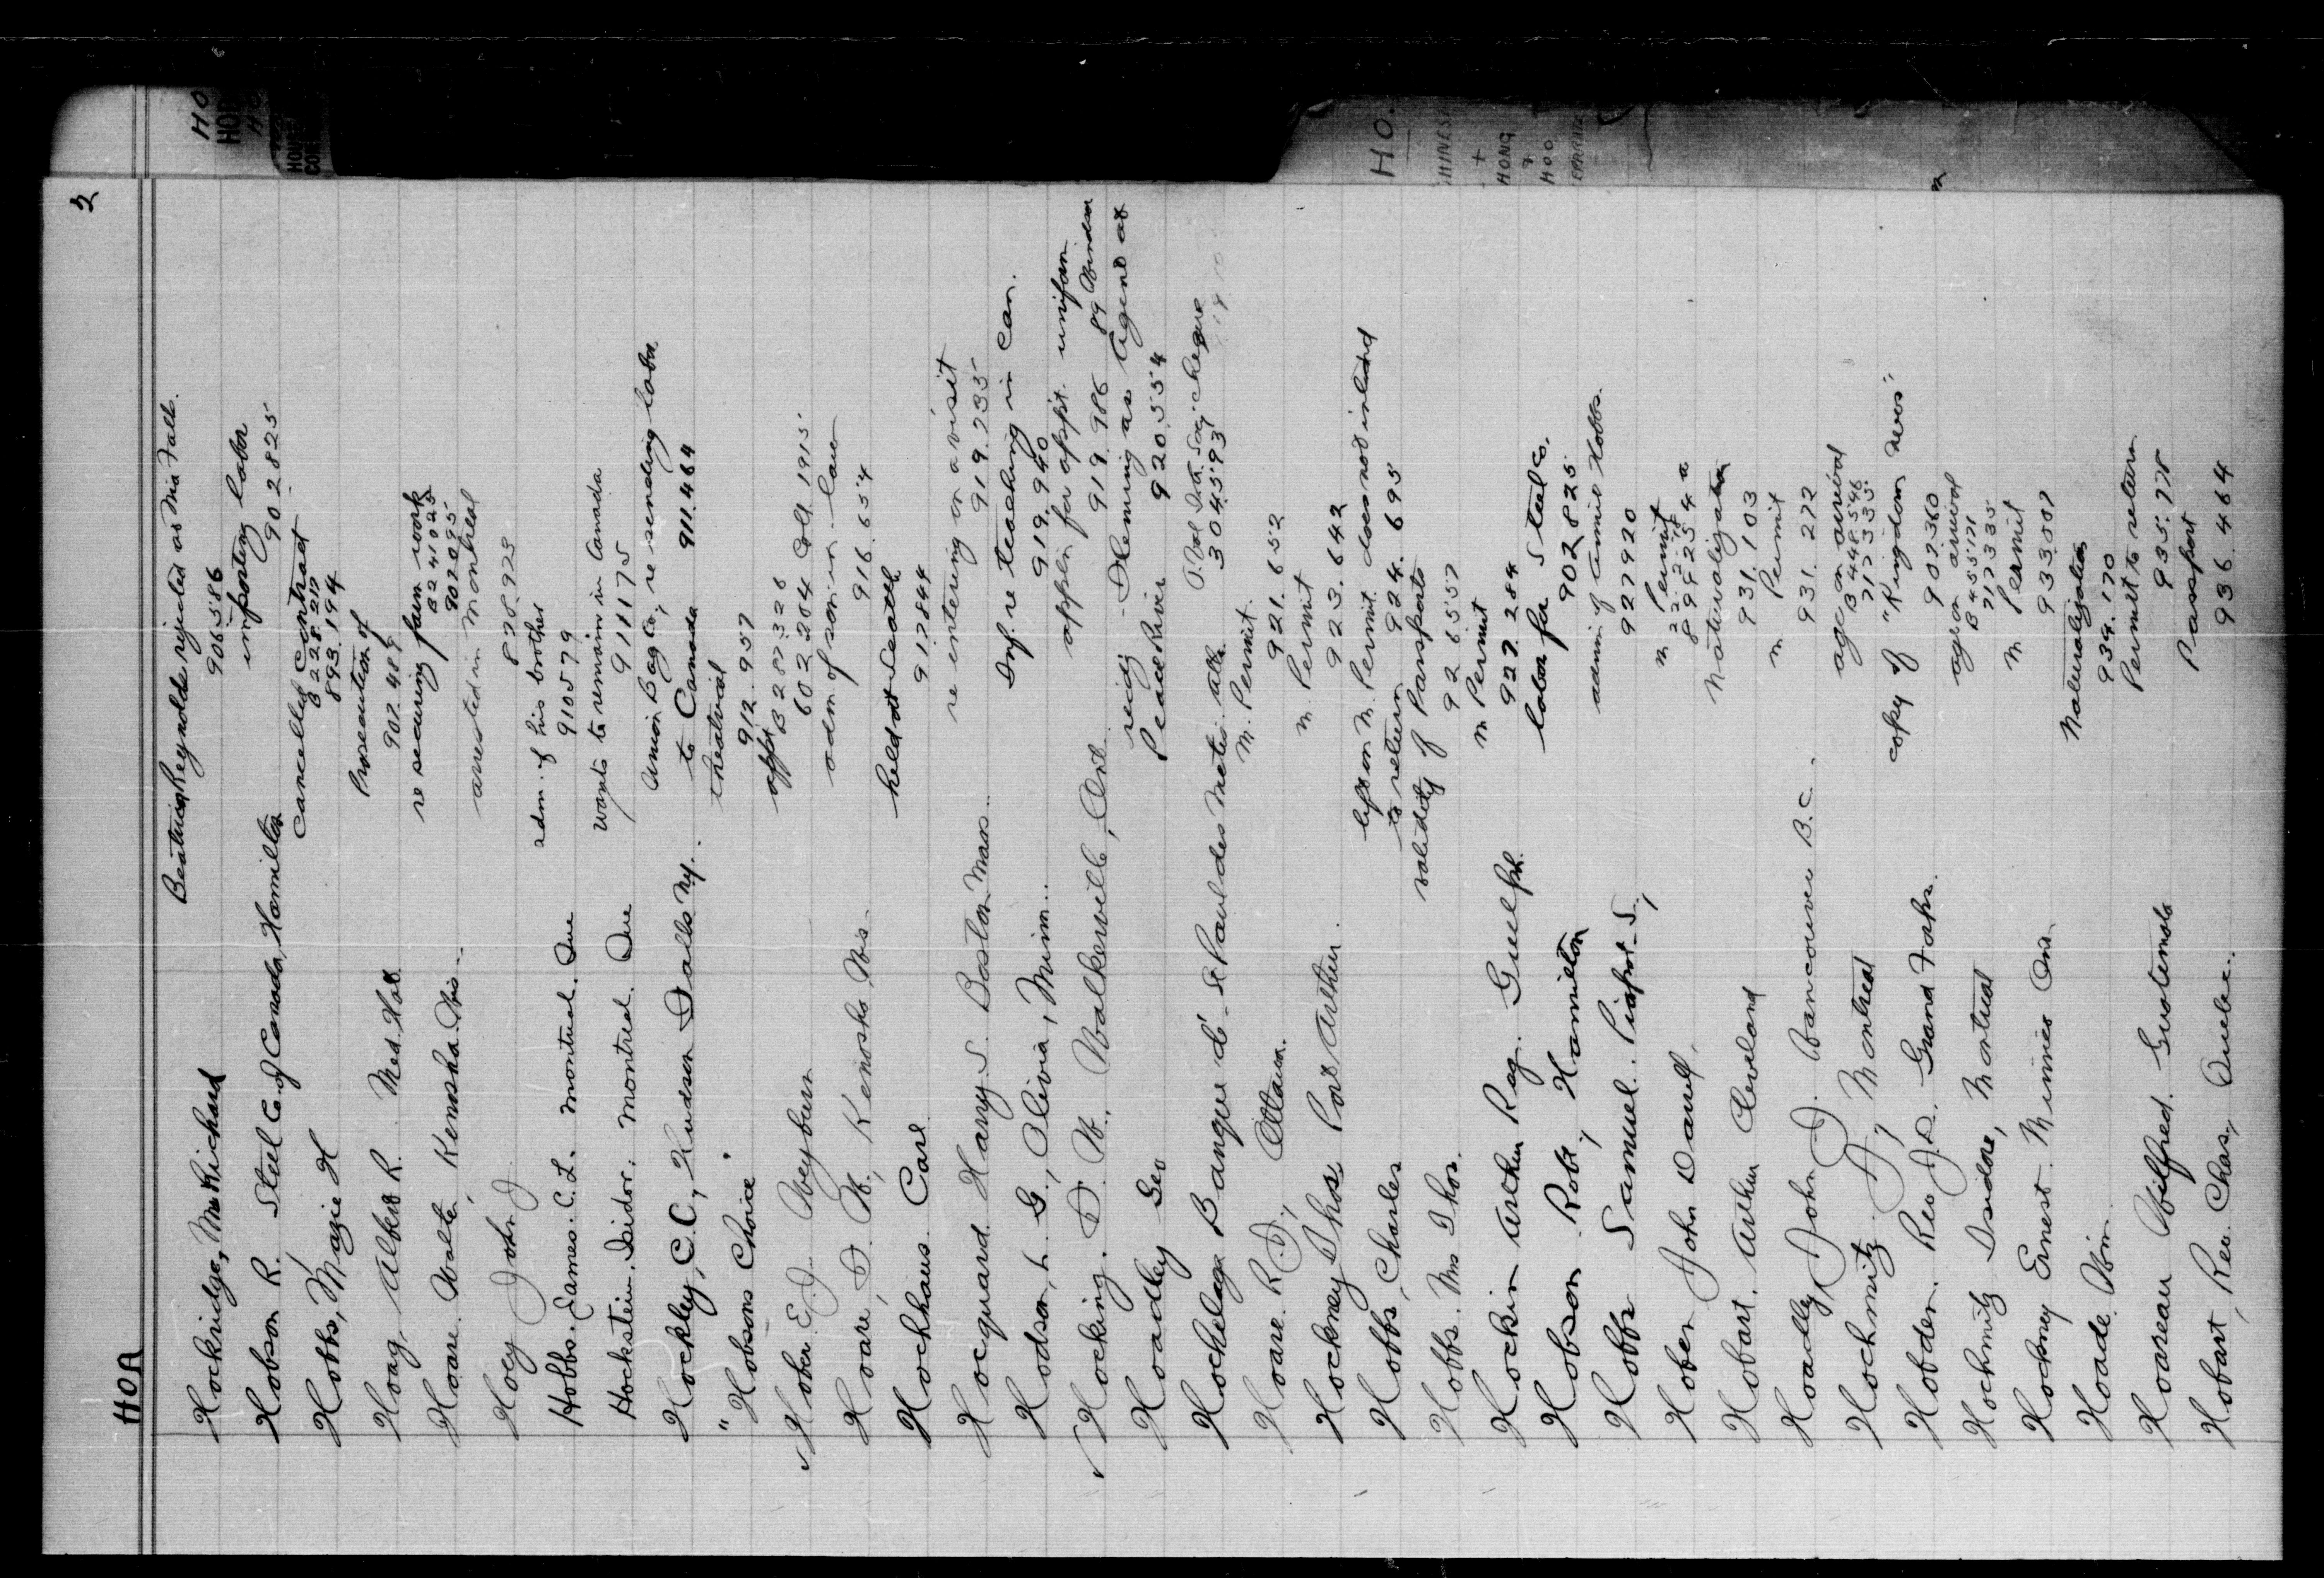 HOA
2
Hockridge, Mrs Richard Beatrice Reynolds rejected at Nia Falls.
906586
Hobson R. Steel Co. of Canada, Hamilton importing labor
902825
Hobbs, Mazie H cancelled contract
B 228217
893.194
Hoag, Albert R. Med. Hat. Prosecution of
907.489
Hoare. Walter, Kenosha. Wis. re securing farm work
B241025
902095
Hoey John J arrested in Montreal
878.923
Hobbs. James. C. L. Montreal. Que adm. of his brother
910579
Hockstein. Isidor. Montreal. Que wants to remain in Canada
911175
Hockley, C.C., Hudson Falls N.Y. Union Bag Co, re sending labor
to Canada 911.464
"Hobsons Choice" theatrical
912.957
Hober. E. J. Weyburn appt
B287328
602204 Coll 1915
Hoare, D. W. Kenosha, Wis. adm of son-in-law
916.654
Hochhaus. Carl held at Seattle
917844
Hocquard. Harry. S. Boston Mass. re entering on a visit
919.235
Hodson, L. G., Olivia, Minn. Inf. re teaching in Can.
919.940
Hocking. D. W. Walkerville, Ont. appln for appt. uniform
919.986 89 Windsor
Hoadley Geo recig Fleming as Agent at
Peace River 920.554
Hochelaga Banque d' St Paul des Metis. Alta
304593
Hoare. R. J., Ottawa. M. Permit.
921.652
Hockney Thos Port Arthur. M. Permit
923.642
Hobbs, Charles left on M. Permit. does not intend
to return 924.695
Hobbs. Mrs Thos. validity of Passports
926557
Hockin Arthur Reg. Guelph. M Permit
927.284
Hobson. Robt, Hamilton labor for Steel Co.
902825
Hobbs Samuel. Piapot. S., adm of Annie Hobbs.
927920
Hober John Daniel, M Permit
899254 a
Hobart. Arthur Cleveland Naturalization
931.103
Hoadley, John J. Vancouver B.C. M Permit
931.272
Hochmitz. A, Montreal age on arrival
B 448546
717335
Hobden. Rev J. D. Grand Forks. copy of "Kingdom News"
902360
Hochmitz Isadore, Montreal age on arrival
B 455171
717335
Hockney Ernest. Mimico Ont. M Permit
933.507
Hoade. Wm Naturalization
934.170
Hoareau Wilfred. Guatemala Permit to return
935.778
Hobart, Rev. Chas., Quebec. Passport
936.464
HO.
CHINESE
+
HONG
HOO
HO